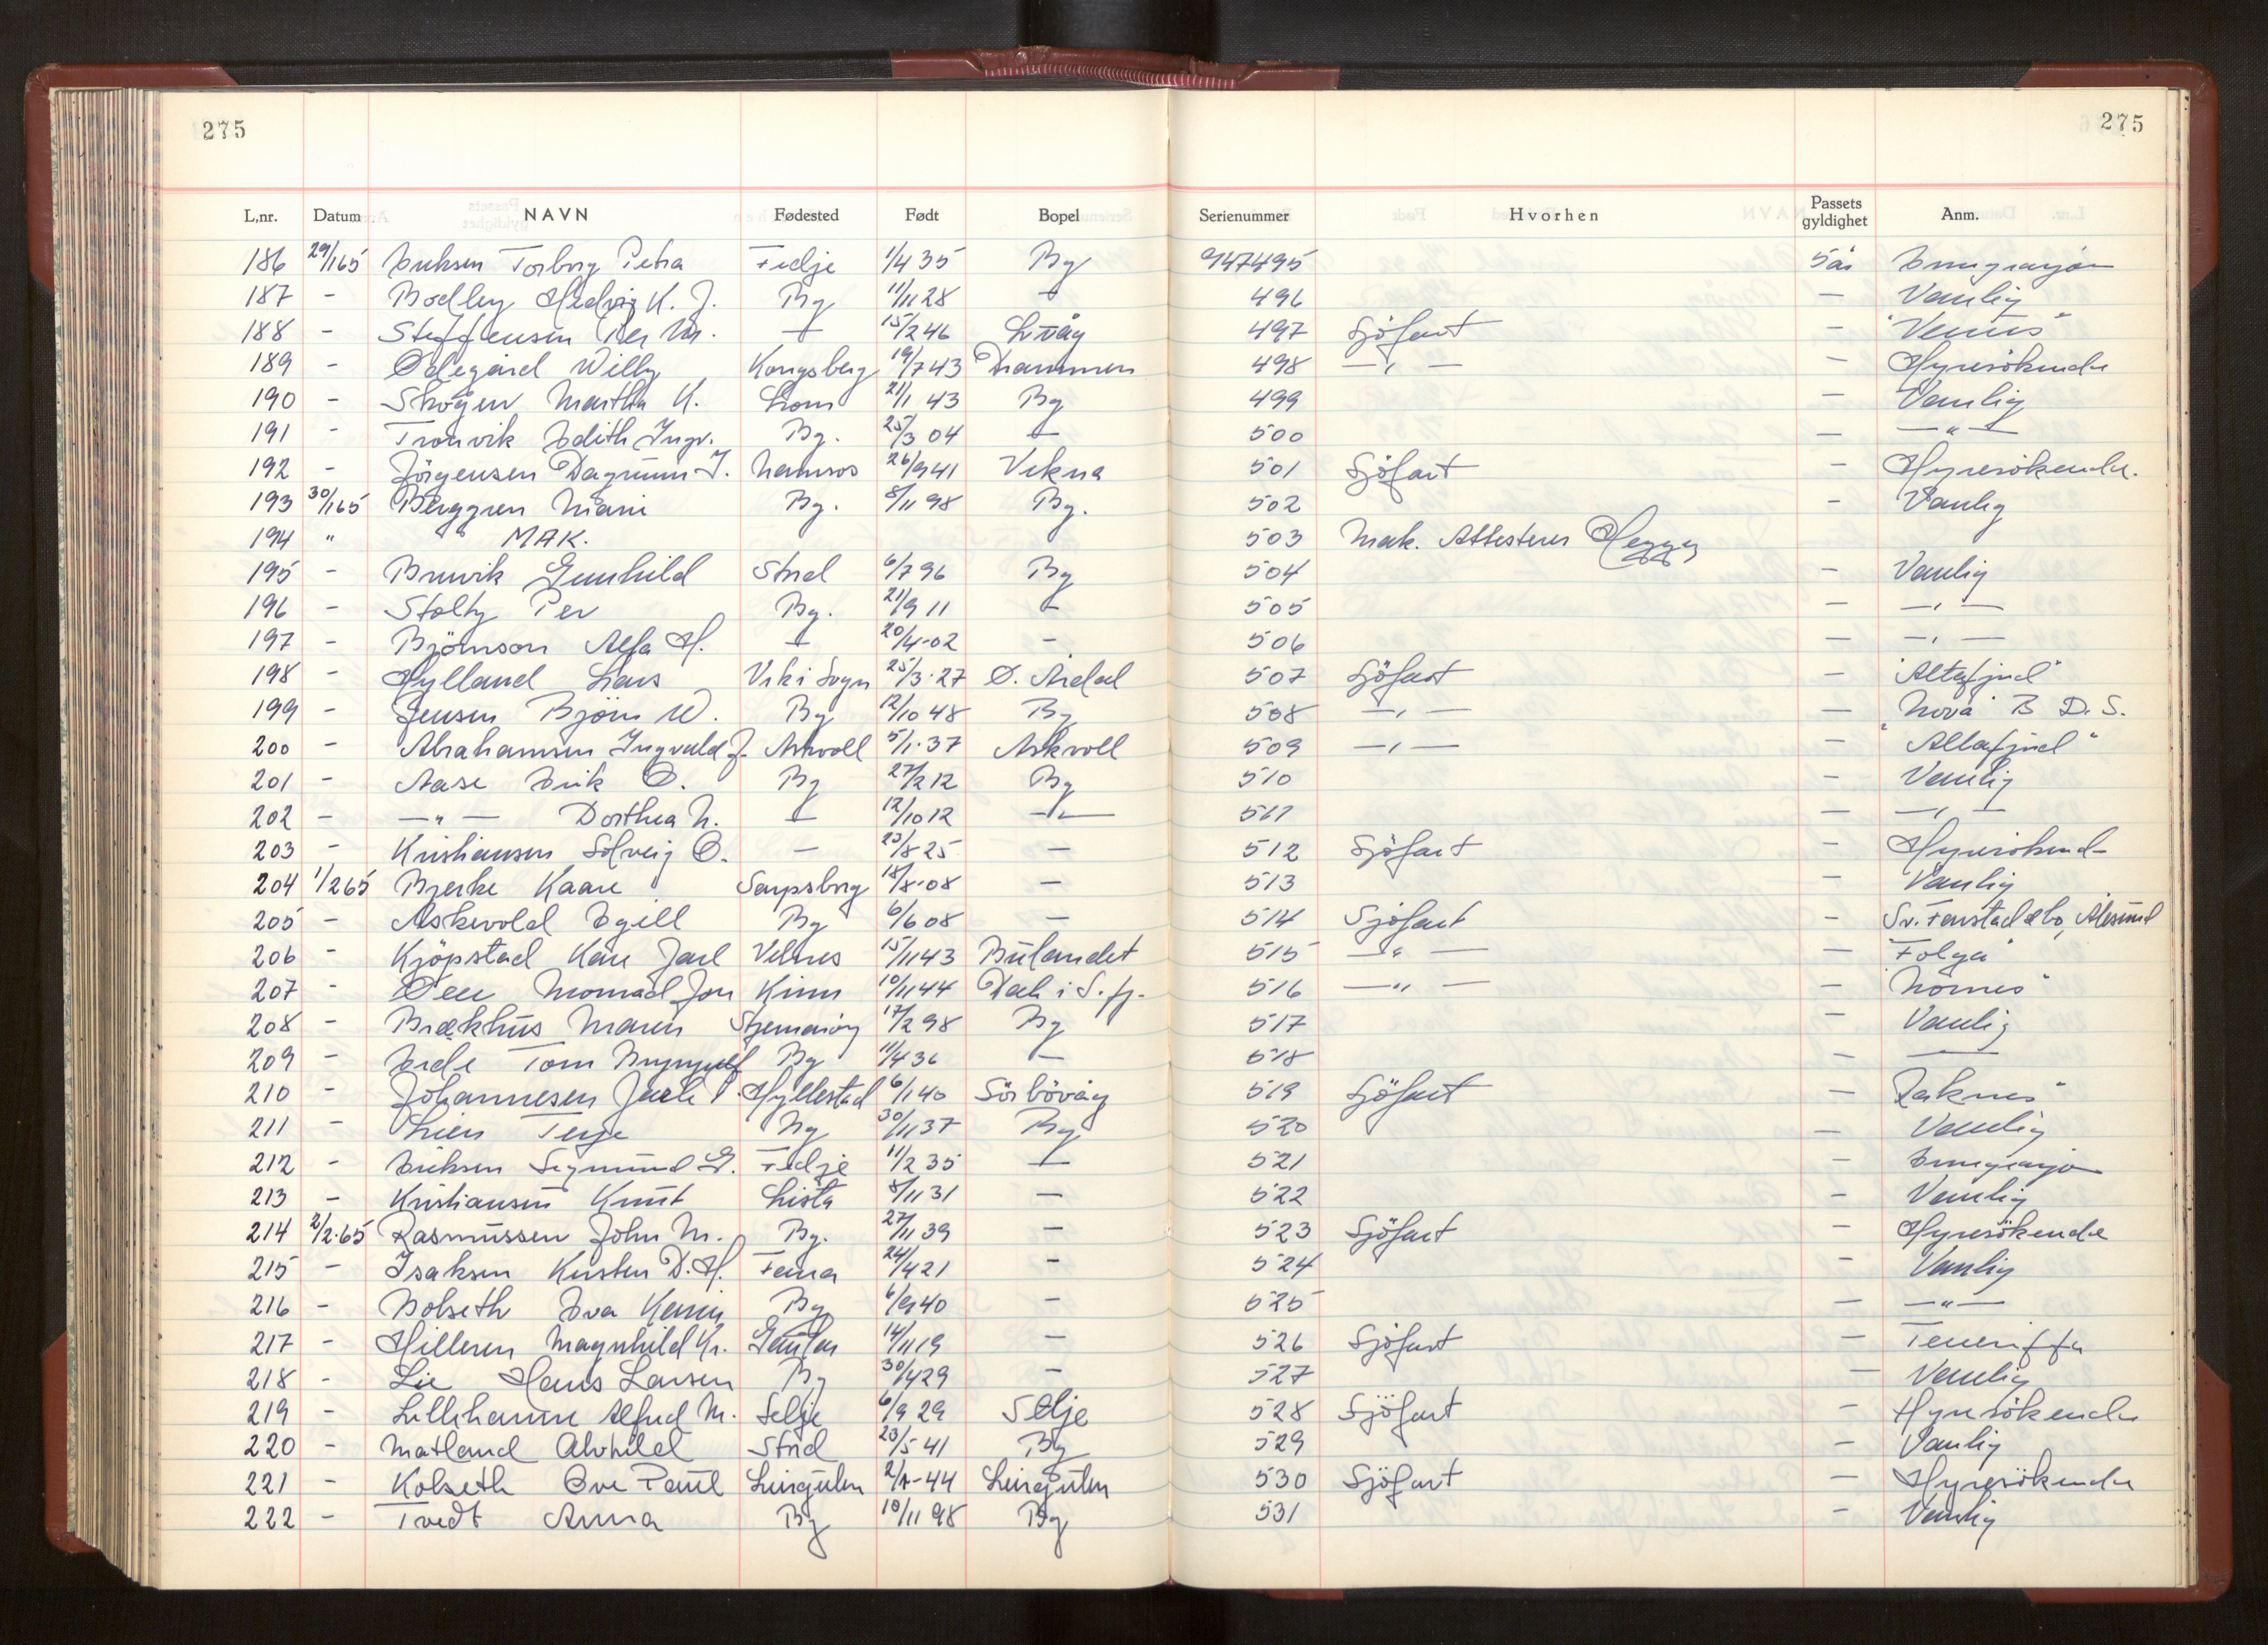 275 275
L,nr. Datum NAVN Fødested Født Bopel Serienummer Hvorhen Passets gyldighet Anm.
186 29/1 65 Eriksen Torborg Petra Fedje 1/4 35 Bg 947495 5 år Emigrasjon
187 - Bodley Hedvig K. J. Bg 11/11 28 - 496 - Vanlig
188 - Steffensen Per M. - 15/2 46 497 Sjöfart - "Venus"
189 - Ødegård Willy Kongsberg 19/7 43 Drammen 498 -"- - Hyresökende
190 - Skogen Martha K. Lom 21/1 43 Bg 499 - Vanlig
191 - Tronvik Edith Ingv. Bg. 25/3 04 - 500 - -"-
192 - Jörgensen Dagrunn I. Namsos 26/9 41 Vikna 501 Sjöfart - Hyresökende.
193 30/1 65 Berggren Marie Bg. 8/11 98 Bg. 502 - Vanlig
194 " MAK. 503 Mak. Attesteres
195 - Bruvik Gunhild Stord 6/7 96 Bg 504 - Vanlig
196 - Stolty Per Bg. 21/9 11 - 505 - -"-
197 - Björnson Alfa H. - 20/4-02 - 506 - -"-
198 - Hylland Lars Vik i Sogn 25/3-27 Ø. Årdal 507 Sjöfart - "Altafjord"
199 - Jensen Björn W. Bg 12/10 48 Bg 508 -"- - "Nova" B D.S.
200 - Abrahamsen Ingvald J. Askvoll 5/1-37 Askvoll 509 -"- - "Altafjord"
201 - Aase Erik O. Bg 27/2 12 Bg 510 - Vanlig
202 - -"- Dorthea N. - 12/10 12 -"- 511 - -"-
203 - Kristiansen Solveig O. - 23/8 25 - 512 Sjöfart - Hyresökend-
204 1/2 65 Bjerke Kaare Sarpsborg 18/8-08 - 513 - Vanlig
205 - Askevold Egill Bg 6/6 08 - 514 Sjöfart - Sv. Fanstad & Co, Ålesund
206 - Kjöpstad Kåre Jarl 15/11 43 Bulandet 515 -"- - "Folga"
207 - Øen Jon Kinn 10/11 44 516 -"- - "Nornes"
208 - Brækhus Maren Stjernaröy 17/2 98 Bg 517 - Vanlig
209 - Eide Tom Brynjulf Bg 11/4 36 - 518 - -
210 - Johannesen Jarle P. Hyllestad 6/1 40 Sörbövåg 519 Sjöfart - "Raknes"
211 - Lien Terje Bg 30/11 37 Bg 520 - Vanlig
212 - Eriksen Sigmund G. Fedje 11/2 35 - 521 - Emigrasjon
213 - Kristiansen Knut Lista 8/11 31 - 522 - Vanlig
214 2/2-65 Rasmussen John M. Bg. 27/11 39 - 523 Sjöfart - Hyresökende
215 - Isaksen Kirsten D. H. Fana 24/4 21 - 524 - Vanlig
216 - Bolseth Eva Karin Bg 6/9 40 - 525 - -"-
217 - Hilleren Magnhild Kr. Gaular 14/11 19 - 526 Sjöfart - Teneriffa
218 - Lie Hans Larsen Bg 30/4 29 - 527 - Vanlig
219 - Lillehamn Alfred M. Selje 6/9 29 Selje 528 Sjöfart - Hyresökende
220 - Matland Alvhild Stord 23/5 41 Bg 529 - Vanlig
221 - Kolseth Ove Paul Leirgulen 2/1-44 Leirgulen 530 Sjöfart - Hyresökende
222 - Tvedt Anna Bg 10/11 98 Bg 531 - Vanlig